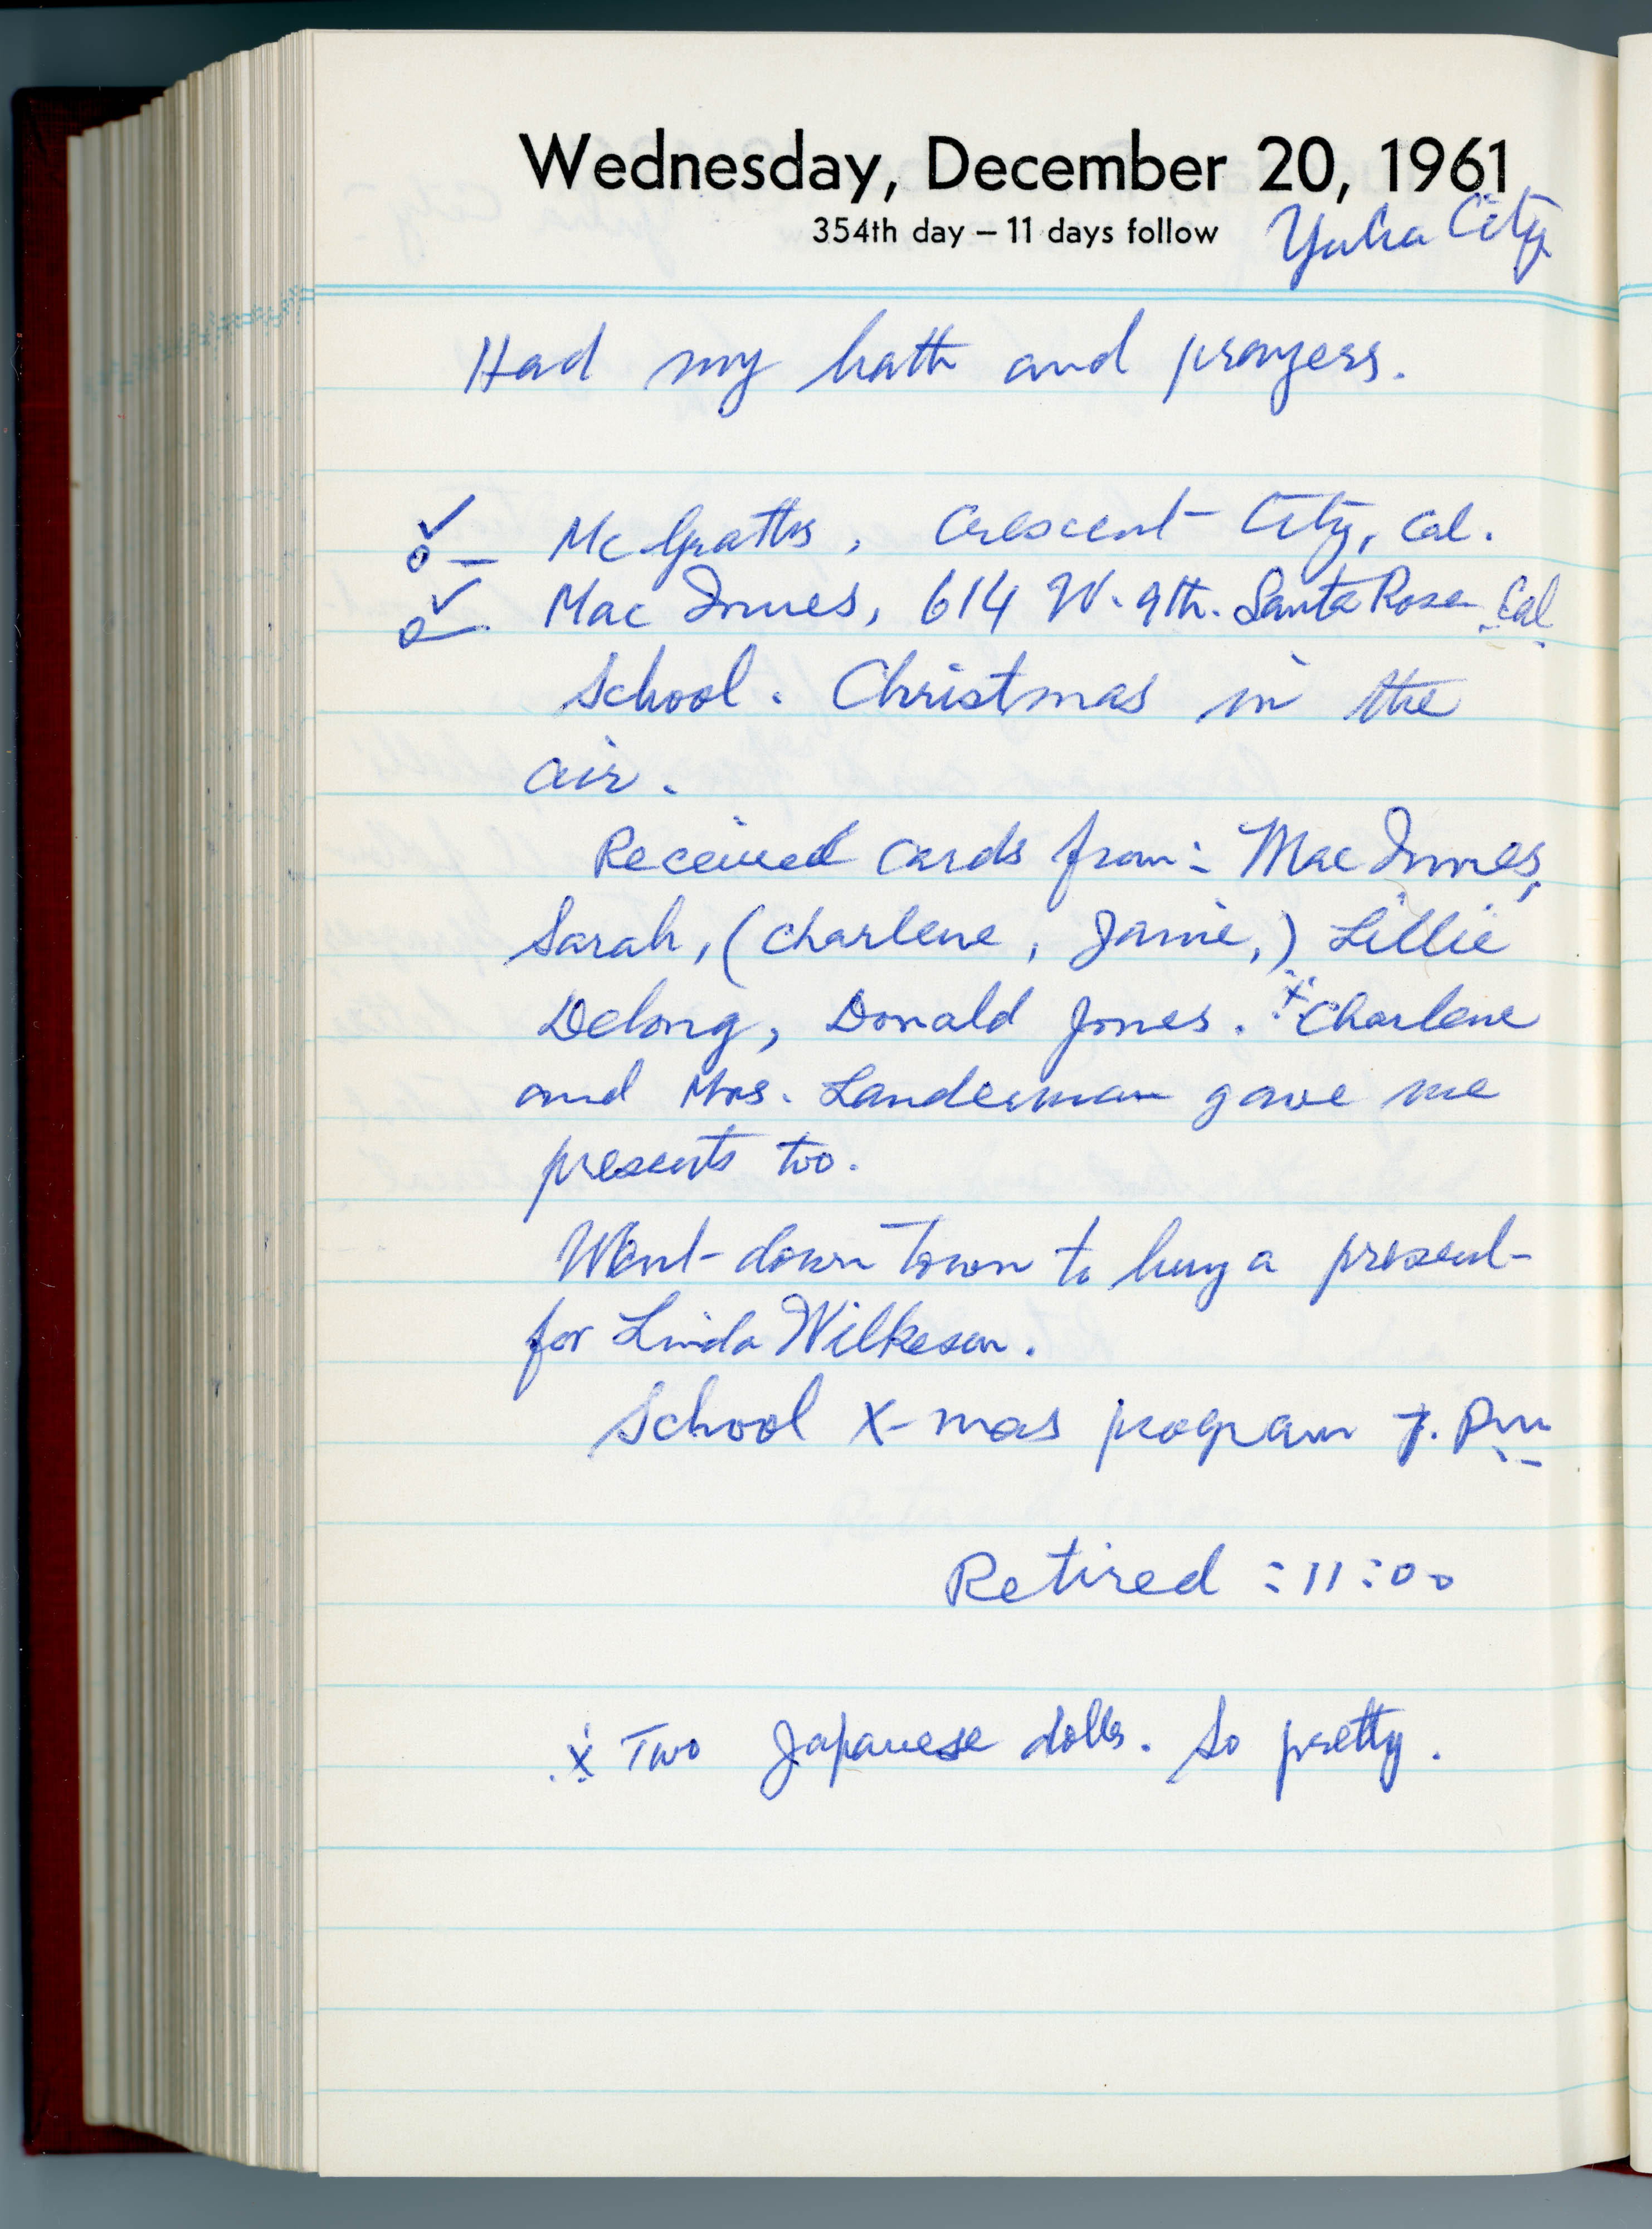 Wednesday, December 20, 1961
354th day – 11 days follow
Yuba City
Had my bath and prayers.
✓ McGraths, Crescent City, Cal.
✓ Mac Innes, 614 W. 9th. Santa Rosa Cal
School. Christmas in the
air.
Received cards from: Mac Innes,
Sarah, (Charlene, Jamie,) Lillie
Delong, Donald Jones. ※Charlene
and Mrs. Landerman gave me
presents too.
Went down town to buy a present
for Linda Wilkeson.
School X-mas program 7. Pm
Retired : 11:00
※ Two Japanese dolls. So pretty.